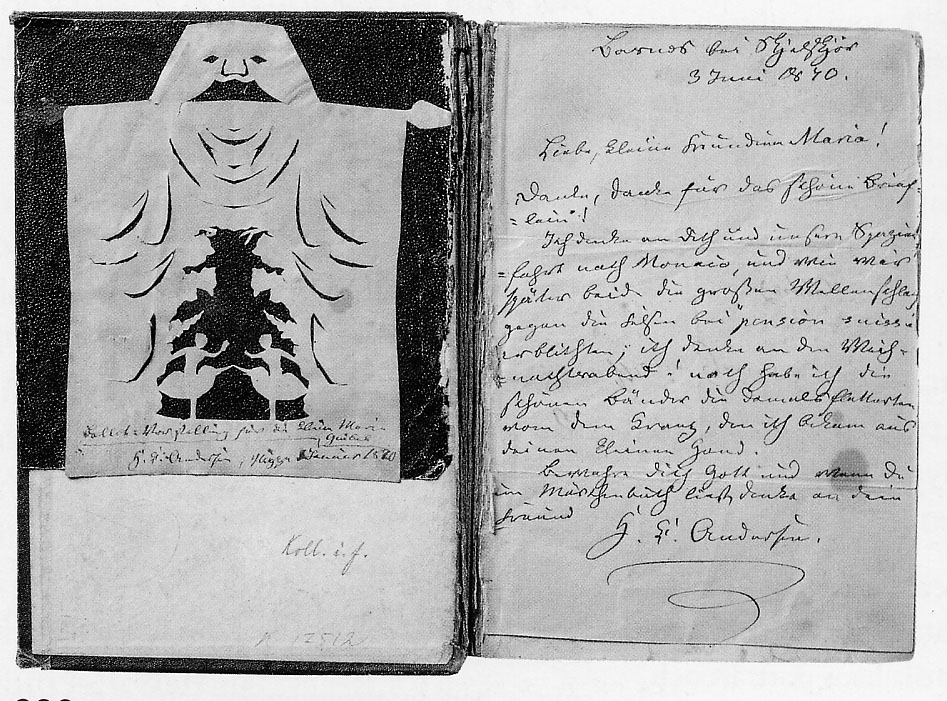 Ballet-Vorstellung für die kleine Maria
H. C. Andersen, Januar 1870
Koll. i. f.
Basnes bei Skjelskjör
3 Juni 1870.
Liebe, kleine Freundinn Maria!
Danke, danke für das schöne Brief-
=lein!
Ich denke an Dich und unsere Spazier
=fahrt nach Monaco, und wie wir
später beide die großen Wellenschlag
gegen die Felsen bei pension suisse
erblickten; ich denke an den Weih-
=nachtsabend! noch habe ich die
schönen Bänder die damals flatterten
vom dem Kranz, den ich bekam aus
deinen kleinen Hand.
Bewahre dich Gott und wenn du
im Märchenbuch liest, denke an dein
Freund
H. C. Andersen.